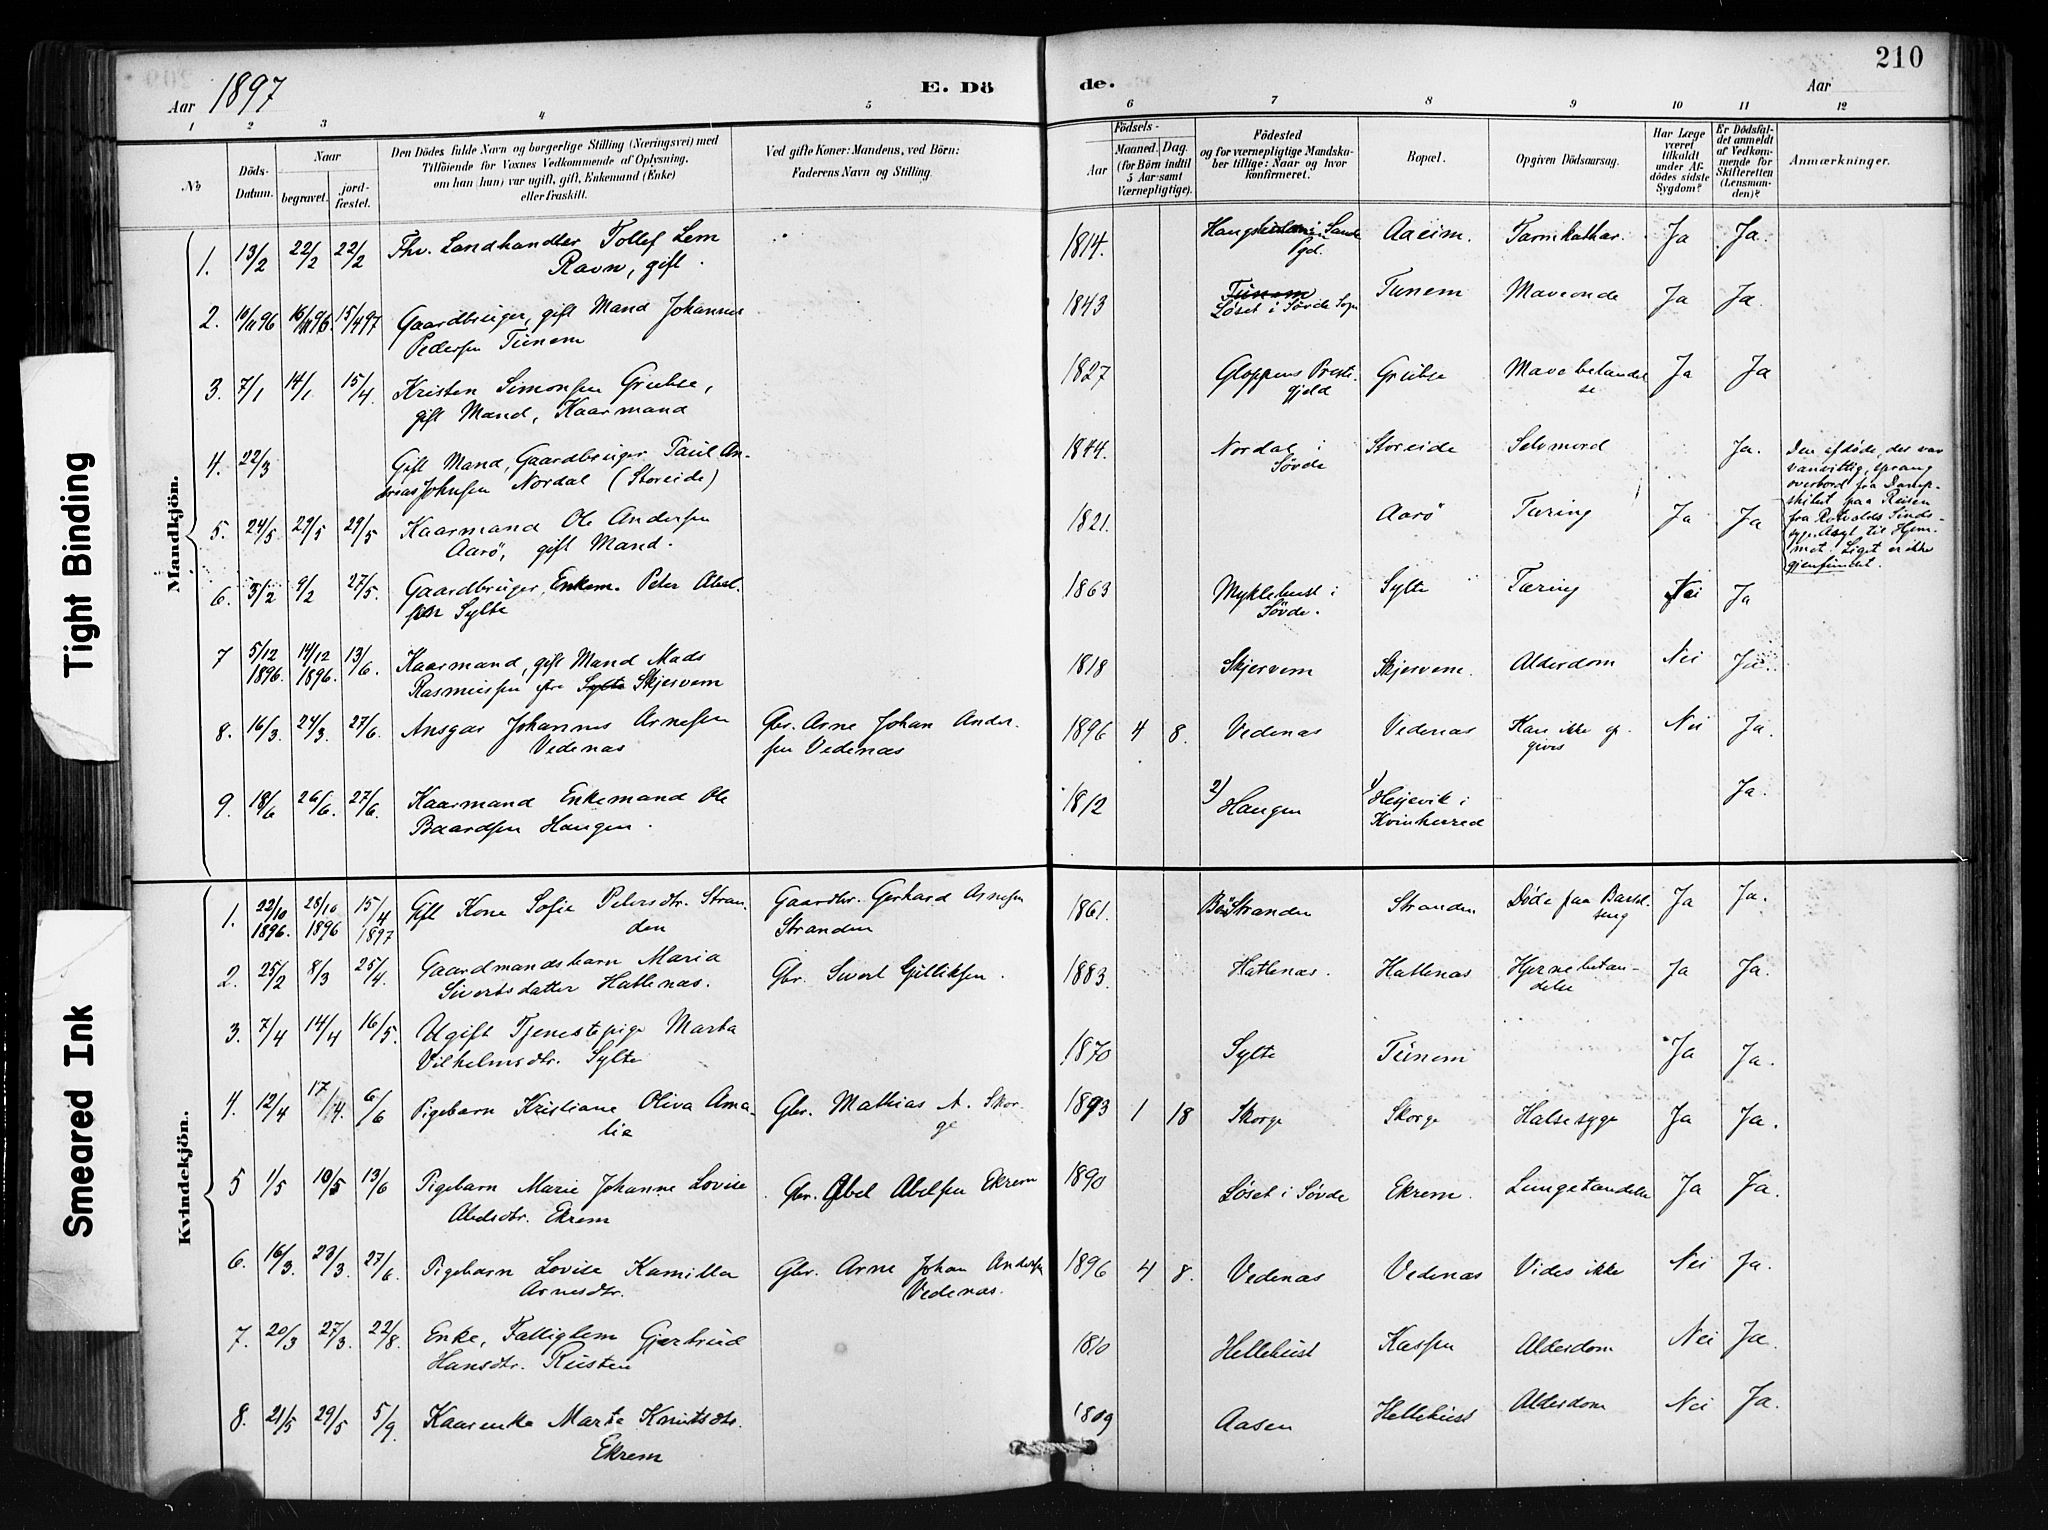 Aar 1897
E. Dö
de.
Aar
210
1 2 3 4 5 6 7 8 9 10 11 12
No
Döds-
Datum.
Naar
begravet.
jord-
fæstet.
Den Dödes fulde Navn og borgerlige Stilling (Næringsvei) med
Tilföiende for Voxnes Vedkommende af Oplysning,
om han (hun) var ugift, gift, Enkemand (Enke)
eller fraskilt.
Ved gifte Koner: Mandens, ved Börn:
Faderens Navn og Stilling.
Födsels-
Aar
Maaned. Dag.
(for Börn indtil
5 Aar samt
Værnepligtige).
Födested
og for værnepligtige Mandska-
ber tillige: Naar og hvor
konfirmeret.
Bopæl.
Opgiven Dödsaarsag.
Har Læge
været
tilkaldt
under Af-
dödes sidste
Sygdom?
Er Dödsfal-
det anmeldt
af Vedkom-
mende for
Skifteretten
(Lensman-
den)?
Anmærkninger.
Mandkjön.
1. 13/2 22/2 22/2 Fhv. Landhandler Tollef Lem
Ravn, gift.
1814. Sande
Pgd. Aaeim. Tarmkathar. Ja Ja.
2. 10/11 96 16/11 96. 15/4 97 Gaardbruger, gift Mand Johannes
Pedersen Tunem
1843 Tunem
Løset i Søvde Sogn Tunem Maveonde Ja Ja.
3. 7/1 14/1 15/4. Kristen Simonsen Grubse,
gift Mand, Kaarmand
1827 Gloppens Preste-
gjeld Grubse Mavebetændel
se Ja Ja
4. 22/3 Gift Mand, Gaardbruger Paul An-
dreas Johnsen Nordal (Storeide)
1844. Nordal i
Søvde Storeide Selvmord Ja.
Den afdøde, der var
vansittig, sprang
overbord fra Damp-
skibet paa Reisen
fra Rotvolds Sinds-
syge Asyl til Hjem-
met. Liget er ikke
gjenfundet.
5. 24/5 29/5 29/5 Kaarmand Ole Andersen
Aarö, gift Mand.
1821. Aarö Tæring Ja Ja
6. 3/2 9/2 27/5. Gaardbruger, Enkem. Peter Abel-
sen Sylte
1863 Myklebust i
Søvde. Sylte Tæring Nei Ja
7 5/12 1896. 14/12 1896. 13/6. Kaarmand, gift Mand Mads
Rasmussen Sylte Skjervem
1818 Skjervem Skjervem. Alderdom Nei Ja.
8. 16/3. 24/3. 27/6. Ansgar Johannes Arnesen
Vedenas
Gbr. Arne Johan Ander-
sen Vedenas
1896 4 8. Vedenas Vedenas Kan ikke op-
gives Nei Ja.
9. 18/6 26/6. 27/6. Kaarmand Enkemand Ole
Baardsen Haugen.
1812 2) Haugen 1) Hesjevik i
Kvinherred Ja.
Kvindekjön.
1. 22/10 1896. 28/10 1896 15/4 1897 Gift Kone Sofie Petersdtr. Stran-
den
Gaardbr. Gerhard Arnesen
Stranden
1861. Stranden Stranden Døde paa Barsel-
seng Ja Ja.
2. 25/2 8/3 25/4. Gaardmandsbarn Maria
Sivertsdatter Hatlenas.
Gbr. Sivert Gulliksen.
1883. Hatlenas. Hatlenas Hjernebetæn-
delse Ja Ja.
3. 7/4 14/4 16/5. Ugift Tjenestepige Marta
Vilhelmsdtr. Sylte
1870 Sylte Tunem Ja Ja.
4. 12/4 17/4. 6/6 Pigebarn Kristiane Oliva Ama-
lie
Gbr. Mathias A. Skor-
ge
1893 1 18 Skorge Skorge Halsesyge Ja Ja.
5 1/5 10/5 13/6 Pigebarn Marie Johanne Lovise
Abelsdtr. Ekrem
Gbr. Abel Abelsen Ekrem
1890 Løset i Søvde Ekrem. Lungetændelse Ja Ja.
6. 16/3. 23/3. 27/6. Pigebarn Lovise Kamilla
Arnesdtr.
Gbr. Arne Johan Andersen
Vedenas.
1896 4 8. Vedenas Vedenas Vides ikke Nei Ja.
7. 20/3 27/3. 22/8. Enke, Fattiglem Gjertrud
Hansdtr. Rusten
1810 Hellebust Kassen Alderdom Nei Ja.
8. 21/5 29/5 5/9. Kaarenke Marte Knutsdtr.
Ekrem
1809 Aasen Hellebust Alderdom Nei Ja.
Tight Binding
Smeared Ink